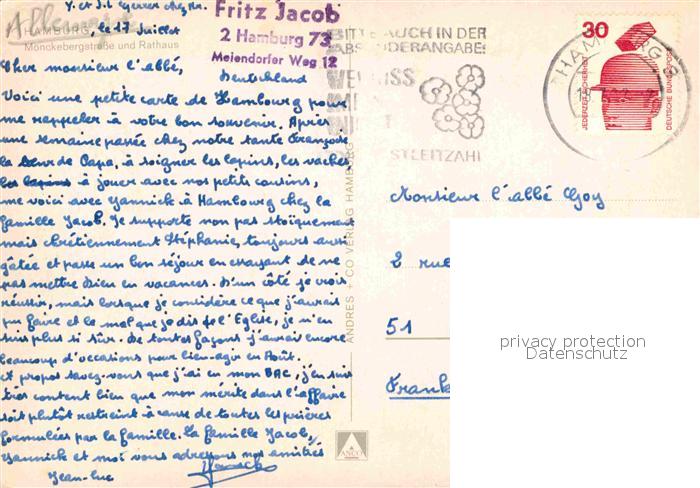 Y. et J.L
Allemagne
HAMBURG, le 17 Juillet
Mönckebergstraße und Rathaus
Fritz Jacob
2 Hamburg 73
Meiendorfer Weg 12
Deutschland
BITTE AUCH IN DER
ABSENDERANGABE
30
HAMBURG
JEDERZEIT SICHERHEIT
DEUTSCHE BUNDESPOST
Cher monsieur l'abbé,
Voici une petite carte de Hambourg pour
me rappeler à votre bon souvenir. Après une
semaine passée chez notre tante Françoise
la sœur de Papa, à soigner les lapins, les vaches
les lapins à jouer avec nos petits cousins,
me voici avec Yannick à Hambourg chez la
famille Jacob. Je supporte non pas stoïquement
mais chrétiennement Stéphanie, toujours aussi
gâtée et passe un bon séjour en essayant de ne
pas mettre Dieu en vacances. D'un côté je crois
réussir, mais lorsque je considère ce que j'aurais
pu faire et le mal que je dis de l'Eglise, je n'en
suis plus si sûr. De toutes façons j'aurai encore
beaucoup d'occasions pour bien agir en Août.
A propos savez-vous que j'ai eu mon BAC, j'en suis
très content bien que mon mérite dans l'affaire
soit plutôt restreint à cause de toutes les prières
formulées par la famille. La famille Jacob,
Yannick et moi vous adressons nos amitiés
Jean-Luc
ANDRES + CO VERLAG HAMBURG
ANCO
Monsieur l'abbé Goy
2 rue
51
Frank
privacy protection
Datenschutz